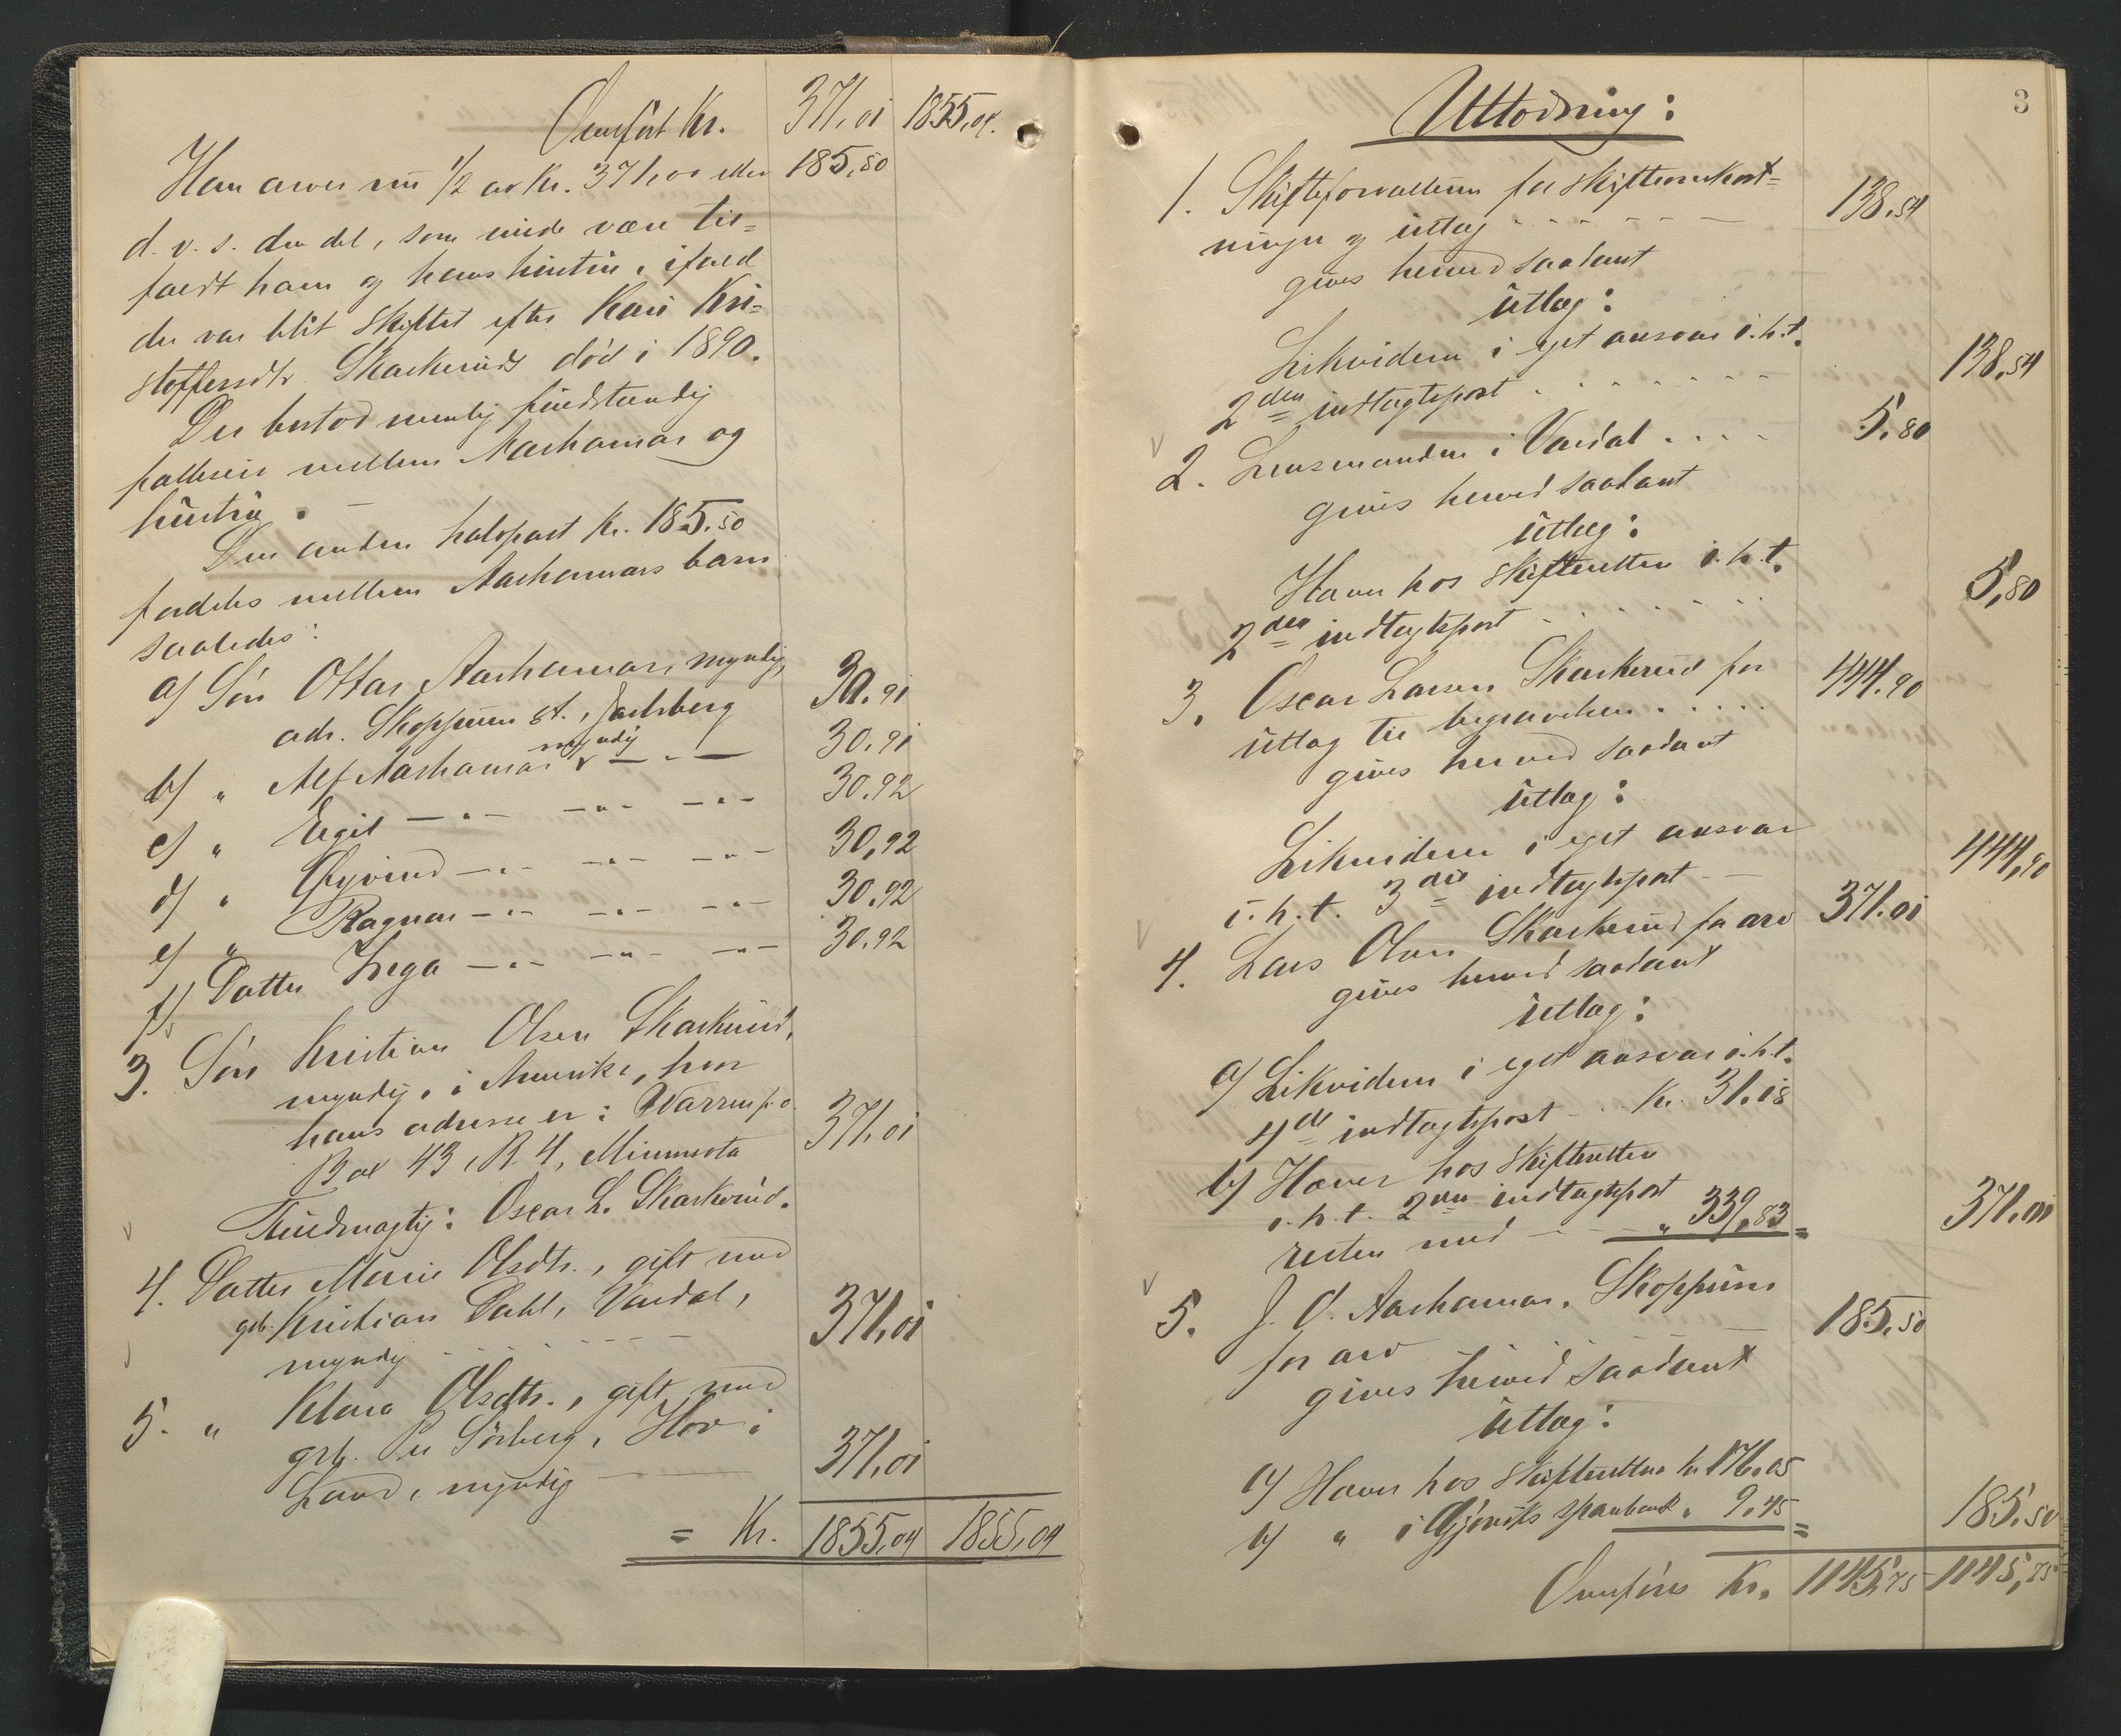 Overført Kr. 371,01 1855,04.
Han arver nu 1/2 av Kr. 371,00 eller 185,50
d. v. s. den del, som vilde være til-
faldt ham og hans hustru, ifald
der var blit skiftet efter Kari Kri-
stoffersdtr. Skarkerud død i 1890.
Der bestod nemlig fuldstændig
fælleseie mellem Aashamar og
hustru. —
Den anden halvpart Kr. 185.50
fordeles mellem Aashamars barn
saaledes:
a) Søn Ottar Aashamar, myndig,
adr. Skoppum st., Jarlsberg 30.91
b) „ Alf Aashamar myndig — „ — 30.91
c) „ Egil — „ — — „ — — „ — 30.92
d) „ Øyvind — „ — — „ — — „ — 30,92
e) „ Ragnar — „ — — „ — — „ — 30.92
f) Datter Inga — „ — — „ — — „ — 30.92
3. Søn Kristian Olsen Skarkerud,
myndig, i Amerika, hvor
hans adresse er: Warren p.o.
Box 43, R. 4, Minnesota 371,01
Fuldmægtig: Oscar L. Skarkerud.
4. Datter Marie Olsdtr., gift med
grb. Kristian Dahl, Vardal,
myndig 371,01
5. „ Klara Olsdtr., gift med
grb. Per Sørberg, Hov i
Land, myndig 371,01
= Kr. 1855,04 1855,04
3
Utlodning:
1. Skifteforvalteren for skifteomkost=
ninger og utlæg 138.54
gives herved saadant
utlæg:
Likvideres i eget ansvar i.h.t.
2den indtægtspost 138,54
2. Lensmanden i Vardal .... 5.80
gives herved saadant
utlæg:
Haver hos skifteretten i.h.t.
2den indtægtspost 5,80
3. Oscar Larsen Skarkerud for
utlæg til begravelsen ..... 444.90
gives herved saadant
utlæg:
Likvideres i eget ansvar
i.h.t. 3die indtægtspost 444,90
4. Lars Olsen Skarkerud for arv 371.01
gives herved saadant
utlæg:
a) Likvideres i eget ansvar i.h.t.
4de indtægtspost Kr. 31.18
b) Haver hos skifteretten
i.h.t. 2den indtægtspost
resten med — „ 339,83 = 371,01
5. J. O. Aashamar, Skoppum
for arv 185,50
gives herved saadant
utlæg:
a) Haver hos skifteretten kr. 176.05
b) „ i Gjøviks sparebank „ 9.45 = 185.50
Overføres Kr. 1145,75 1145,75